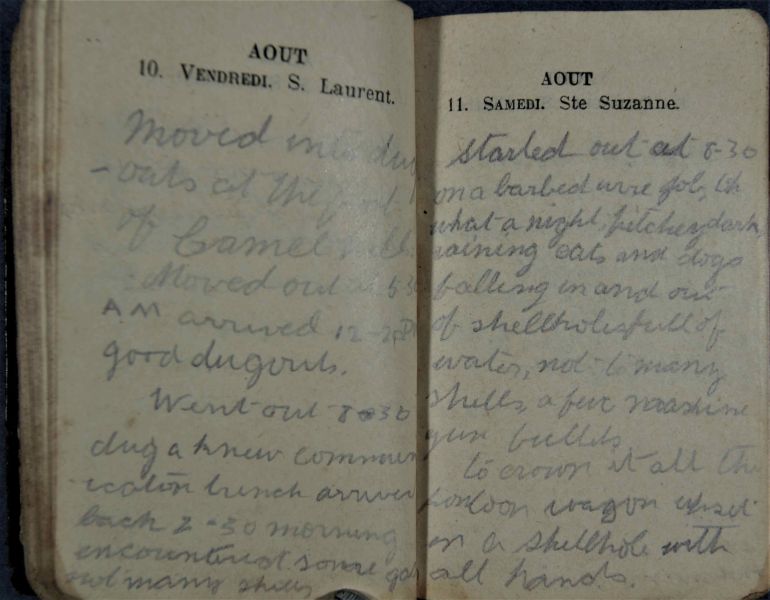 AOUT
10. VENDREDI. S. Laurent.
Moved into dug
-outs at the foot
of Camel Hill
Moved out at 5 30
AM arrived 12-
good dugouts.
Went out 8-30
dug a knew commun
ication trench arrived
back 2-30 morning
encountered some gas
not many shells
AOUT
11. SAMEDI. Ste Suzanne.
started out at 8-30
on a barbed wire job, Oh
what a night, pitchey dark,
raining cats and dogs
falling in and out
of shellholes full of
water, not to many
shells, a few maxine
gun bullets
to crown it all the
wagon upset
in a shellhole with
all hands.